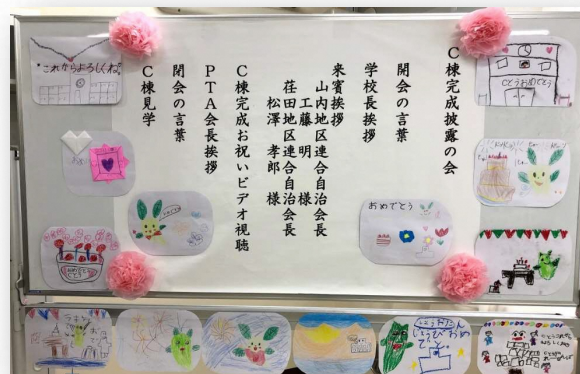 C棟完成披露の会
開会の言葉
学校長挨拶
来賓挨拶
山内地区連合自治会長
工藤 明 様
荏田地区連合自治会長
松澤 孝郎 様
C棟完成お祝いビデオ視聴
PTA会長挨拶
閉会の言葉
C棟見学
これからよろしくね。
Cとうおめでとう
おめでとう